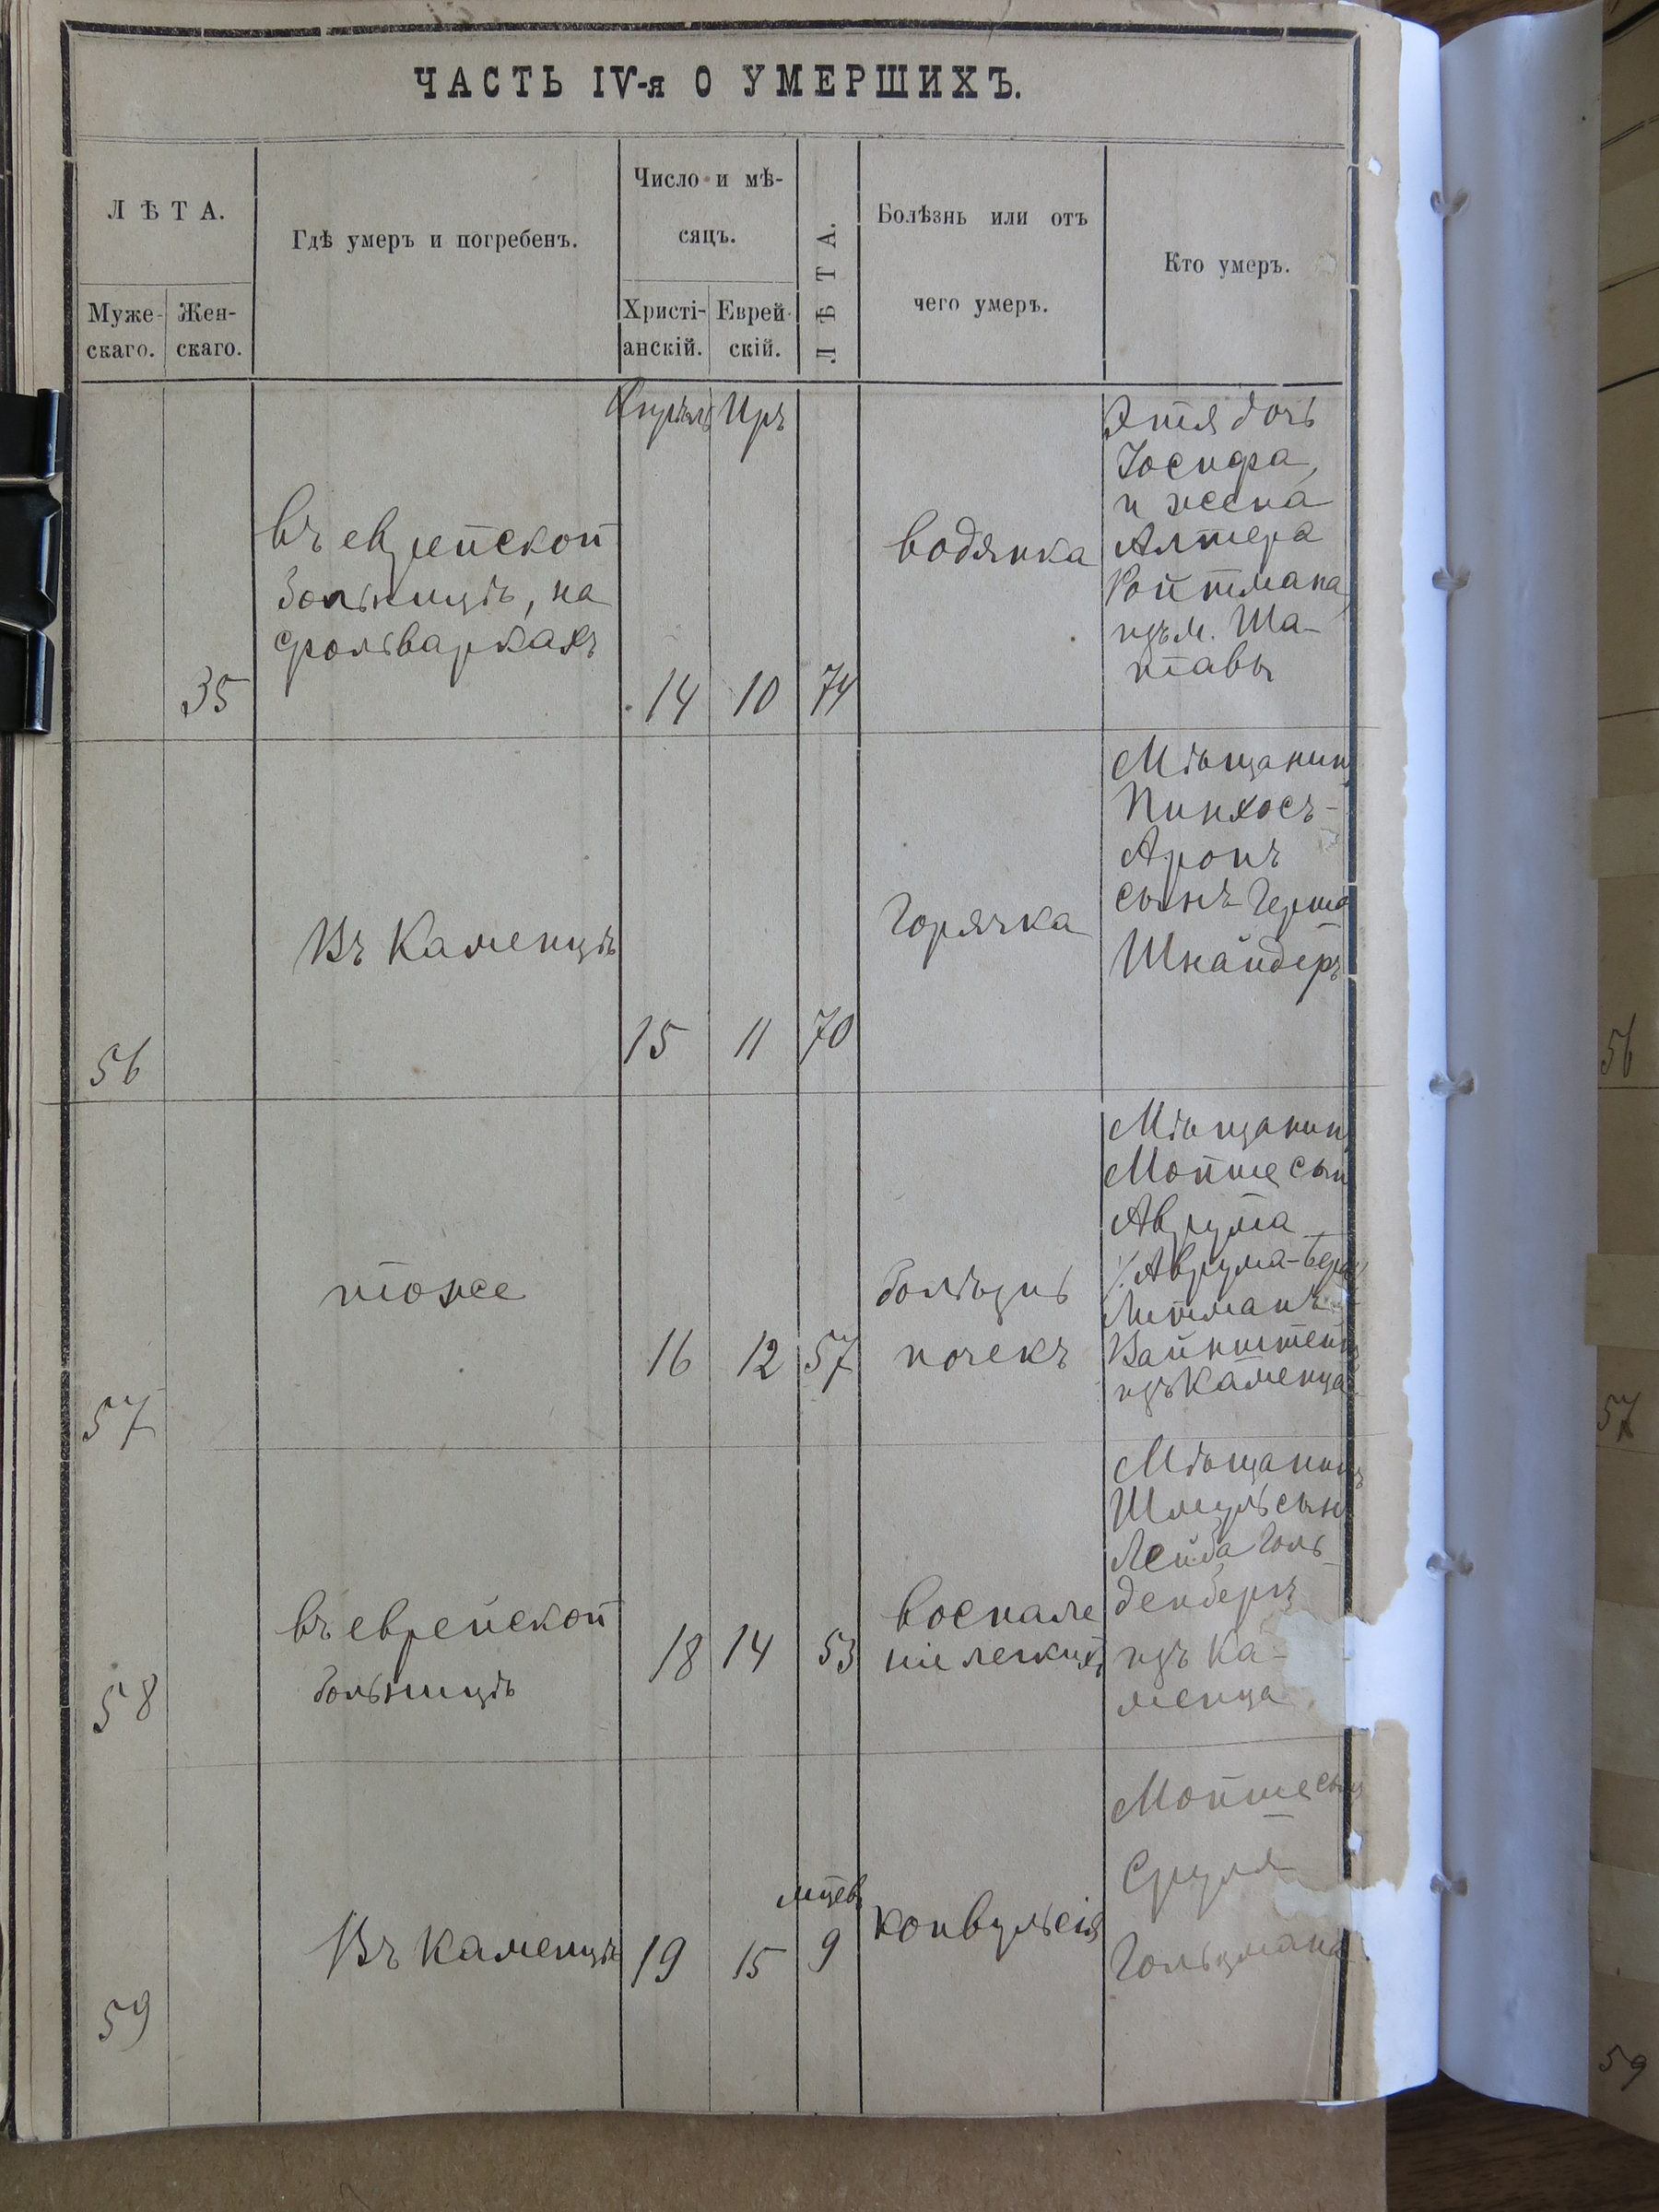 ЧАСТЬ IV-я О УМЕРШИХЪ.
Л Ѣ Т А.
Муже-
скаго.
Жен-
скаго.
Гдѣ умеръ и погребенъ.
Число и мѣ-
сяцъ.
Христі-
анскій.
Еврей-
скій.
Л Ѣ Т А.
Болѣзнь или отъ
чего умеръ.
Кто умеръ.
35
въ еврейской
больницѣ, на
фольваркахъ
Апрѣль
14
Иръ
10
74
водянка
Этля дочь
Иосифа,
и жена
Алтера
Ройтмана
изъ м. Ша-
тавы
56
Въ Каменцѣ
15
11
70
Горячка
Мѣщанинъ
Пинхосъ-
Аронъ
сынъ Герша
Шнайдеръ
57
тоже
16
12
57
болѣзнь
почекъ
Мѣщанинъ
Мойше сын
Аврума
Аврума-Бера
Литманъ
Вайнштейнъ
изъ Каменца
58
въ еврейской
больницѣ
18
14
53
воспале
ніе легкихъ
Мѣщанинъ
Шмуль сын
Лейба Голь-
денбергъ
изъ Ка-
менца
59
Въ Каменцѣ
19
15
мцев
9
конвульсія
Мойше сын
Сруля
Гольцмана
56
57
59